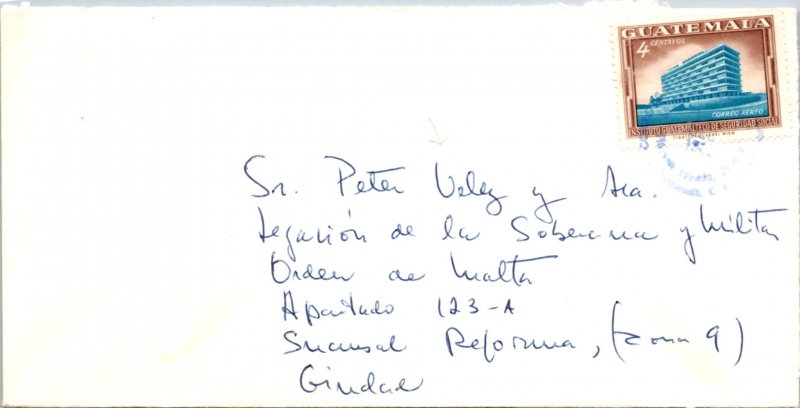 GUATEMALA
4 CENTAVOS
CORREO AEREO
INSTITUTO GUATEMALTECO DE SEGURIDAD SOCIAL
Sr. Peter Velez y Sra.
Legación de la Soberana y Militar
Orden de Malta
Apartado 123-A
Sucursal Reforma, (zona 9)
Ciudad